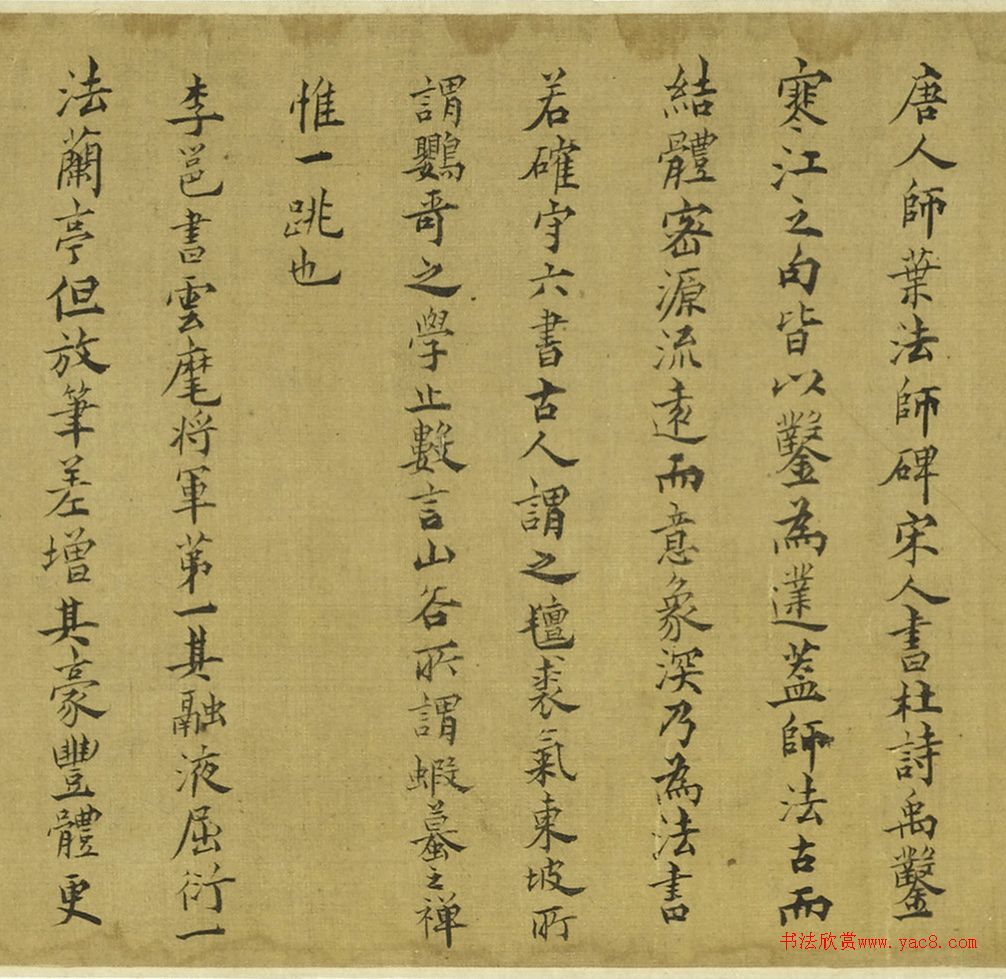 唐人師葉法師碑宋人書杜詩禹鑿
寒江之句皆以鑿為蓋師法古而
結體密源流遠而意象深乃為法書
若確守六書古人謂之氊裘氣東坡所
謂鸚哥之學止數言山谷所謂蝦蟇之禅
惟一跳也
李邕書雲麾將軍第一其融液屈衍一
法蘭亭但放筆差增其豪豐體更
书法欣赏www.yac8.com